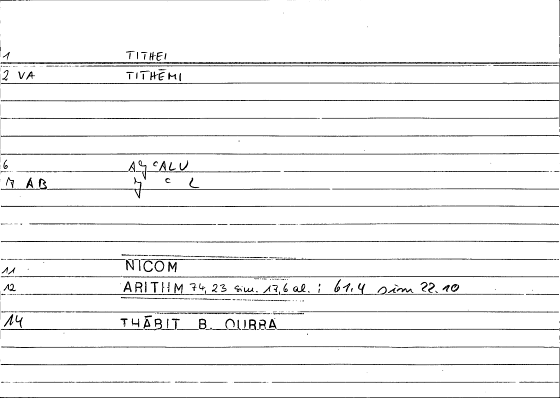 1 TITHEI
2 VA TITHĒMI
6 AǦʿALU
7 AB Ǧ ʿ L
11 NICOM
12 ARITHM 74,23 sim. 17,6 al. ; 61.4 sim 22.10
14 THĀBIT B. QURRA